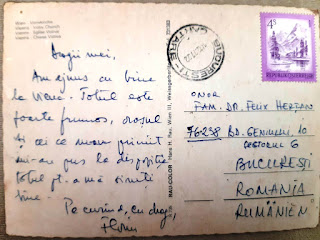 Wien, Votivkirche
Vienna, Votiv Church
Vienne, Eglise Votive
Vienna, Chiesa Votiva
Dragii mei,
Am ajuns cu bine
la Viena. Totul este
foarte frumos, orașul
și cei ce m-au primit
mi-au pus la dispoziție
totul pt. a mă simți
bine.
Pe curînd, cu drag,
Florin
RAU-COLOR Hans H. Rau, Wien
BUCUREȘTI
CARTARE
4 S
REPUBLIK ÖSTERREICH
ONOR
FAM. DR. FELIX HERȚAN
76238 BD. GENIULUI, 10
SECTORUL 6
BUCUREȘTI
ROMANIA
RUMÄNIEN